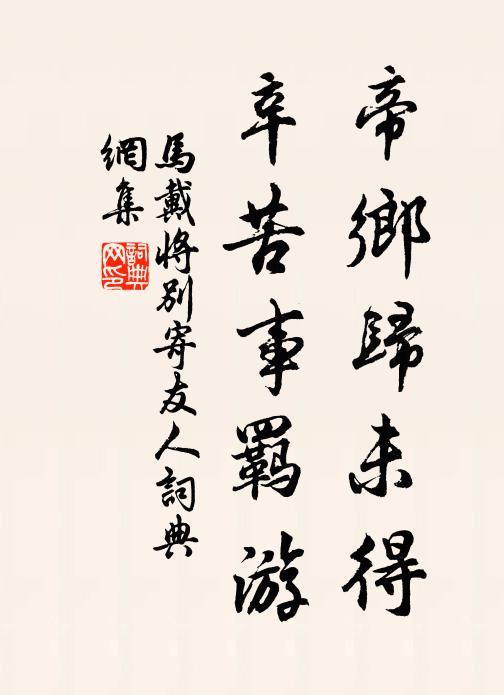 帝鄉歸未得
辛苦事羈游
馬戴將別寄友人詞典
網集
詞典
网印